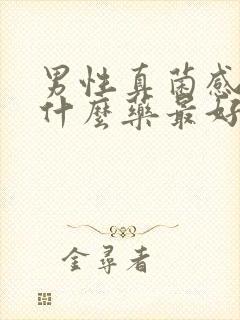 男性真菌感
什麼藥最好
金尋者